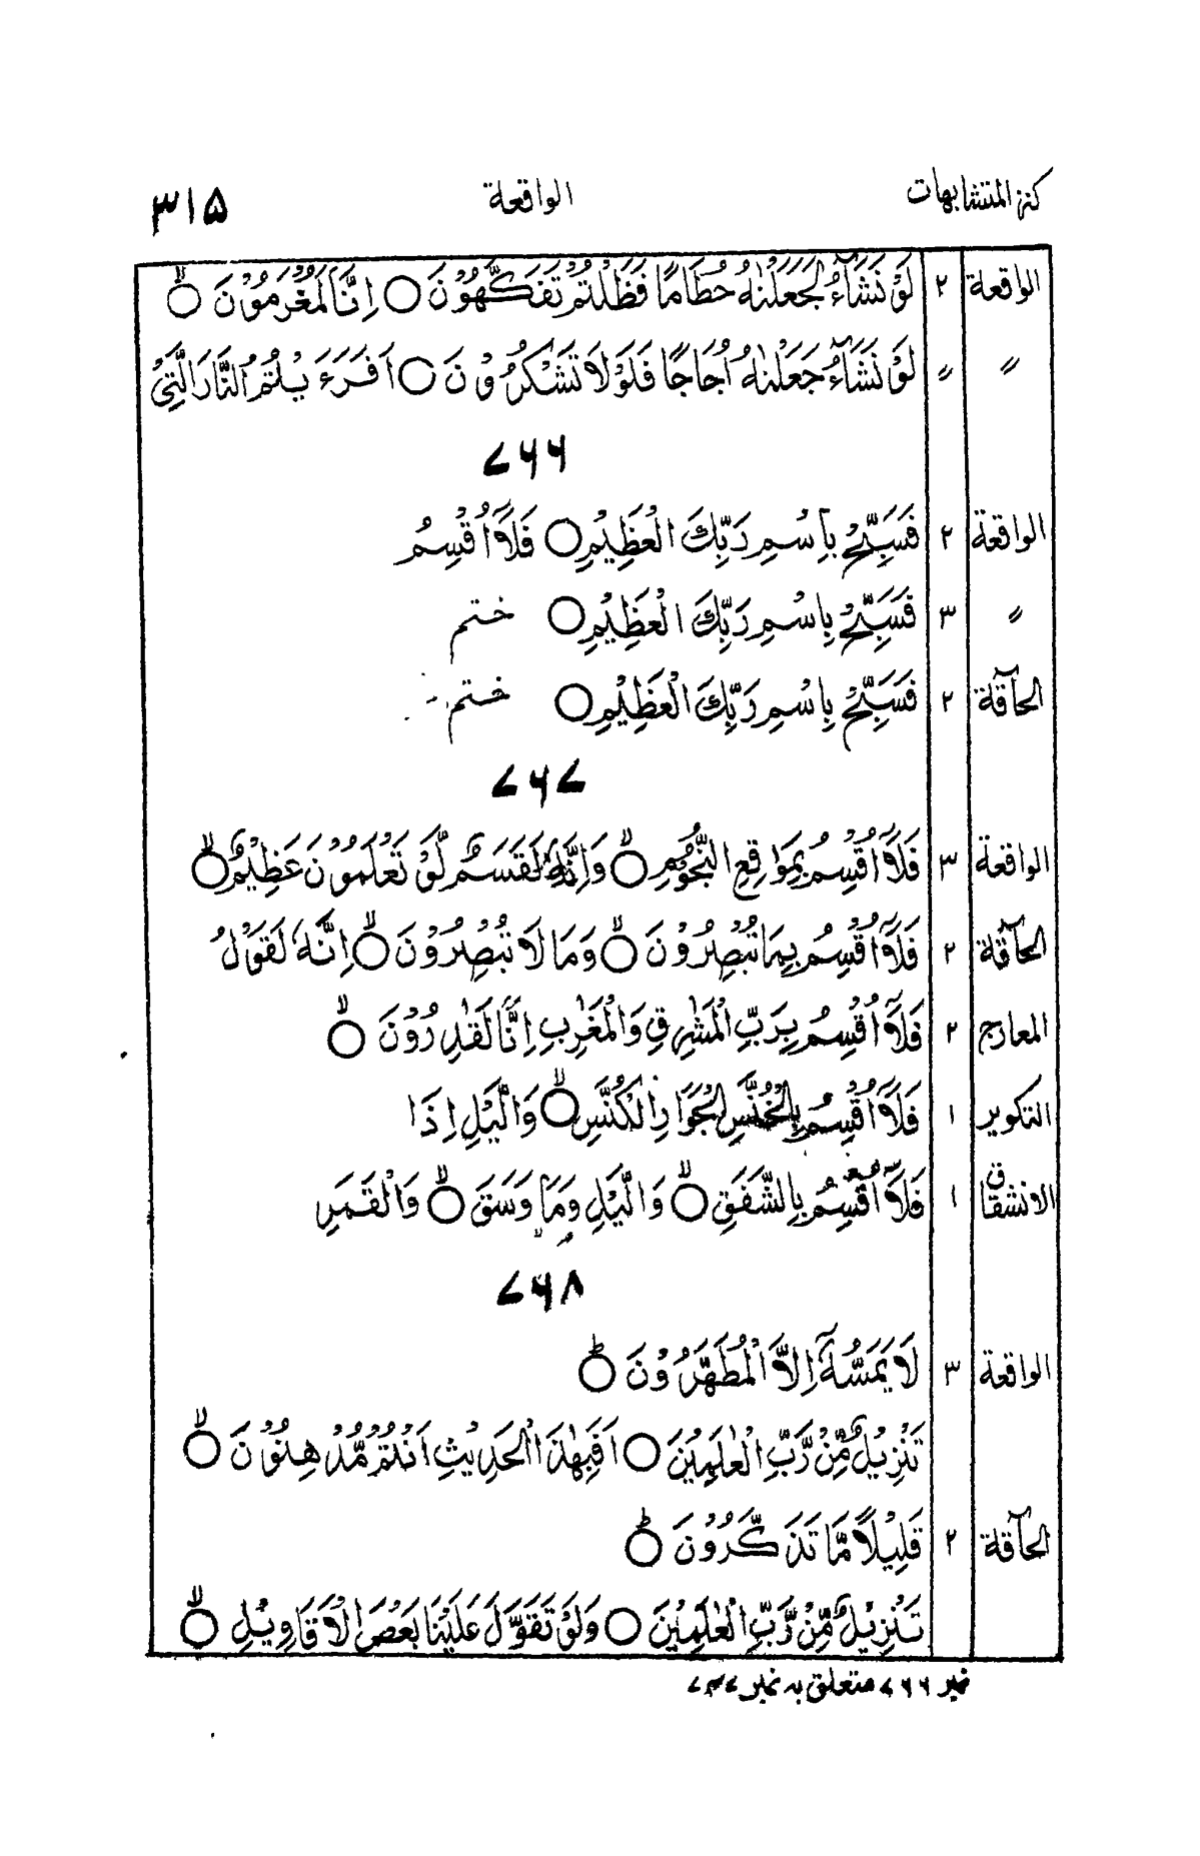 كنز المتشابهات الواقعة ٣١٥
الواقعة ٢ لَوْ نَشَآءُ لَجَعَلْنٰهُ حُطَامًا فَظَلْتُمْ تَفَكَّهُوْنَ ○ اِنَّا لَمُغْرَمُوْنَ ○ۙ
〃 〃 لَوْ نَشَآءُ جَعَلْنٰهُ اُجَاجًا فَلَوْلَا تَشْكُرُوْنَ ○ اَفَرَءَيْتُمُ النَّارَ الَّتِيْ
٧٦٦
الواقعة ٢ فَسَبِّحْ بِاسْمِ رَبِّكَ الْعَظِيْمِ ○ فَلَآ اُقْسِمُ
〃 ٣ فَسَبِّحْ بِاسْمِ رَبِّكَ الْعَظِيْمِ ○ ختم
الحآقة ٢ فَسَبِّحْ بِاسْمِ رَبِّكَ الْعَظِيْمِ ○ ختم
٧٦٧
الواقعة ٣ فَلَآ اُقْسِمُ بِمَوٰقِعِ النُّجُوْمِ ○ۙ وَاِنَّهٗ لَقَسَمٌ لَّوْ تَعْلَمُوْنَ عَظِيْمٌ ○ۙ
الحآقة ٢ فَلَآ اُقْسِمُ بِمَا تُبْصِرُوْنَ ○ۙ وَمَا لَا تُبْصِرُوْنَ ○ۙ اِنَّهٗ لَقَوْلُ
المعارج ٢ فَلَآ اُقْسِمُ بِرَبِّ الْمَشٰرِقِ وَالْمَغٰرِبِ اِنَّا لَقٰدِرُوْنَ ○ۙ
التكوير ١ فَلَآ اُقْسِمُ بِالْخُنَّسِ الْجَوَارِ الْكُنَّسِ ○ۙ وَالَّيْلِ اِذَا
الانشقاق ١ فَلَآ اُقْسِمُ بِالشَّفَقِ ○ۙ وَالَّيْلِ وَمَا وَسَقَ ○ۙ وَالْقَمَرِ
٧٦٨
الواقعة ٣ لَا يَمَسُّهٗٓ اِلَّا الْمُطَهَّرُوْنَ ○ؕ
تَنْزِيْلٌ مِّنْ رَّبِّ الْعٰلَمِيْنَ ○ اَفَبِهٰذَا الْحَدِيْثِ اَنْتُمْ مُّدْهِنُوْنَ ○ۙ
الحآقة ٢ قَلِيْلًا مَّا تَذَكَّرُوْنَ ○ؕ
تَنْزِيْلٌ مِّنْ رَّبِّ الْعٰلَمِيْنَ ○ وَلَوْ تَقَوَّلَ عَلَيْنَا بَعْضَ الْاَقَاوِيْلِ ○ۙ
نمبر ٧٦٦ متعلق به نمبر